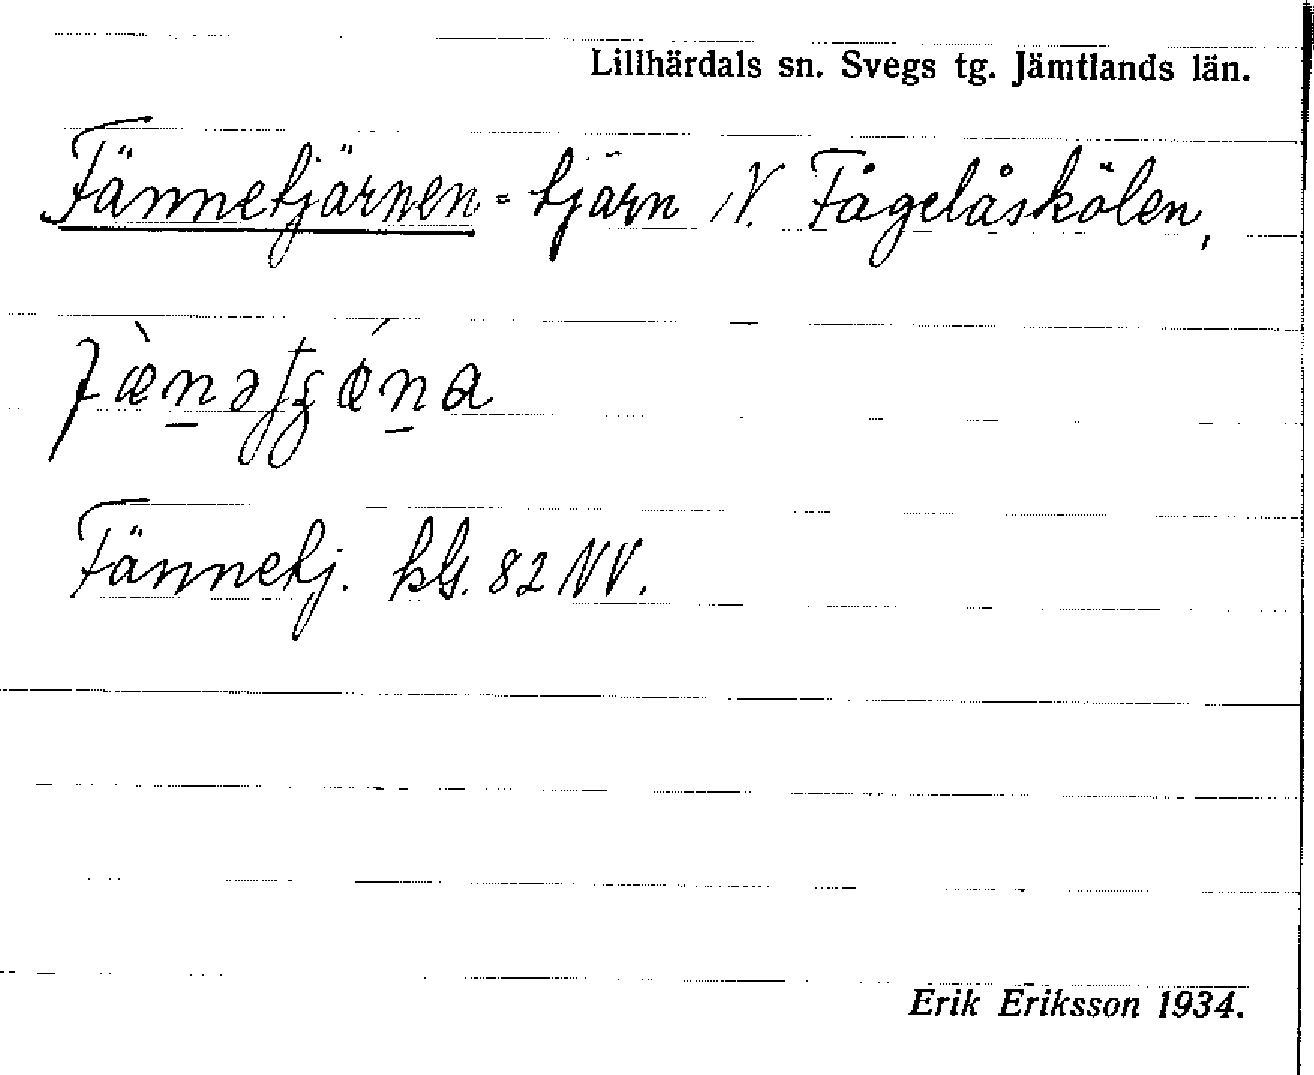 Lillhärdals sn. Svegs tg. Jämtlands län.
Fännetjärnen - tjärn N. Fågelåskölen,
Fännetj. kbl. 82 NV.
Erik Eriksson 1934.